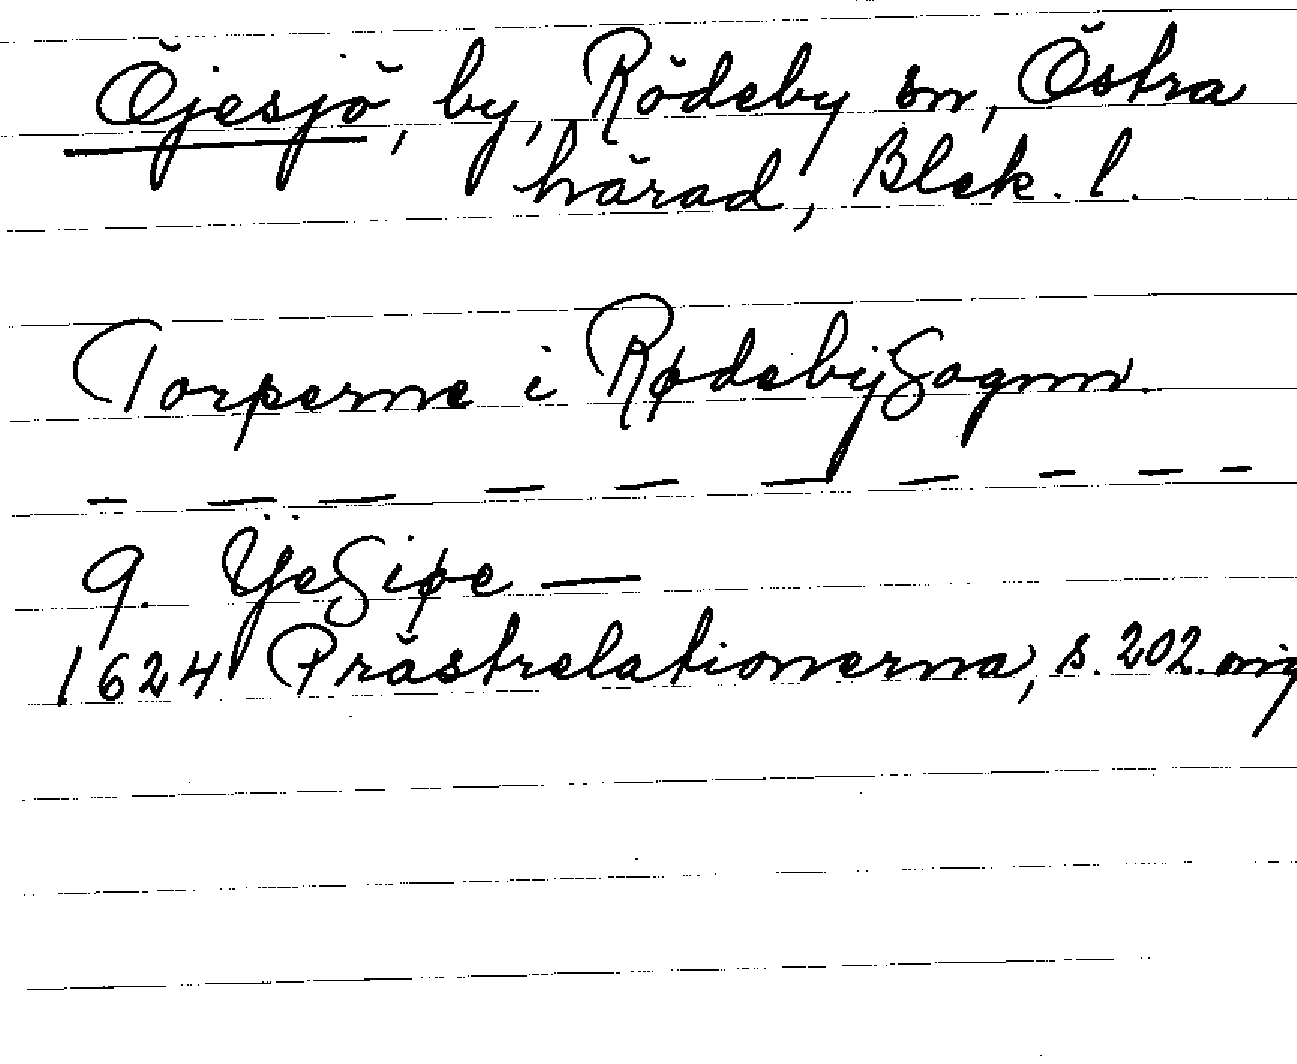 Öjesjö, by, Rödeby sn, Östra
härad, Blek. l.
Torperne i RødebijSognn.
— — — — — — — — —
9. ÿeSiøe —
1624 Prästrelationerna, s. 202. orig